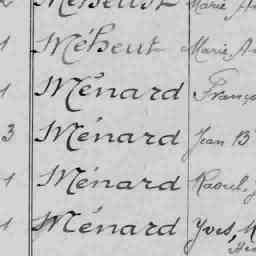 Méheust Marie
1 Méheut Marie
1 Ménard Franço
3 Ménard Jean B
1 Ménard Raoul, J
1 Ménard Yves, M